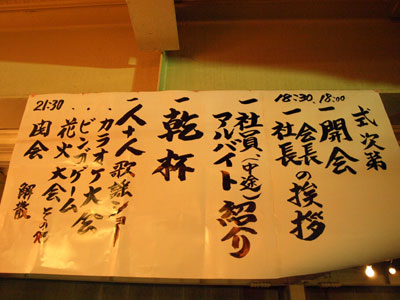 式次第
18:00
一開会
18:30
一会長
社長の挨拶
一社員、(中途)
アルバイト紹介
一乾杯
一人十人歌謡ショー
・カラオケ大会
・ビンゴゲーム
・花火大会 その他
21:30
閉会 解散